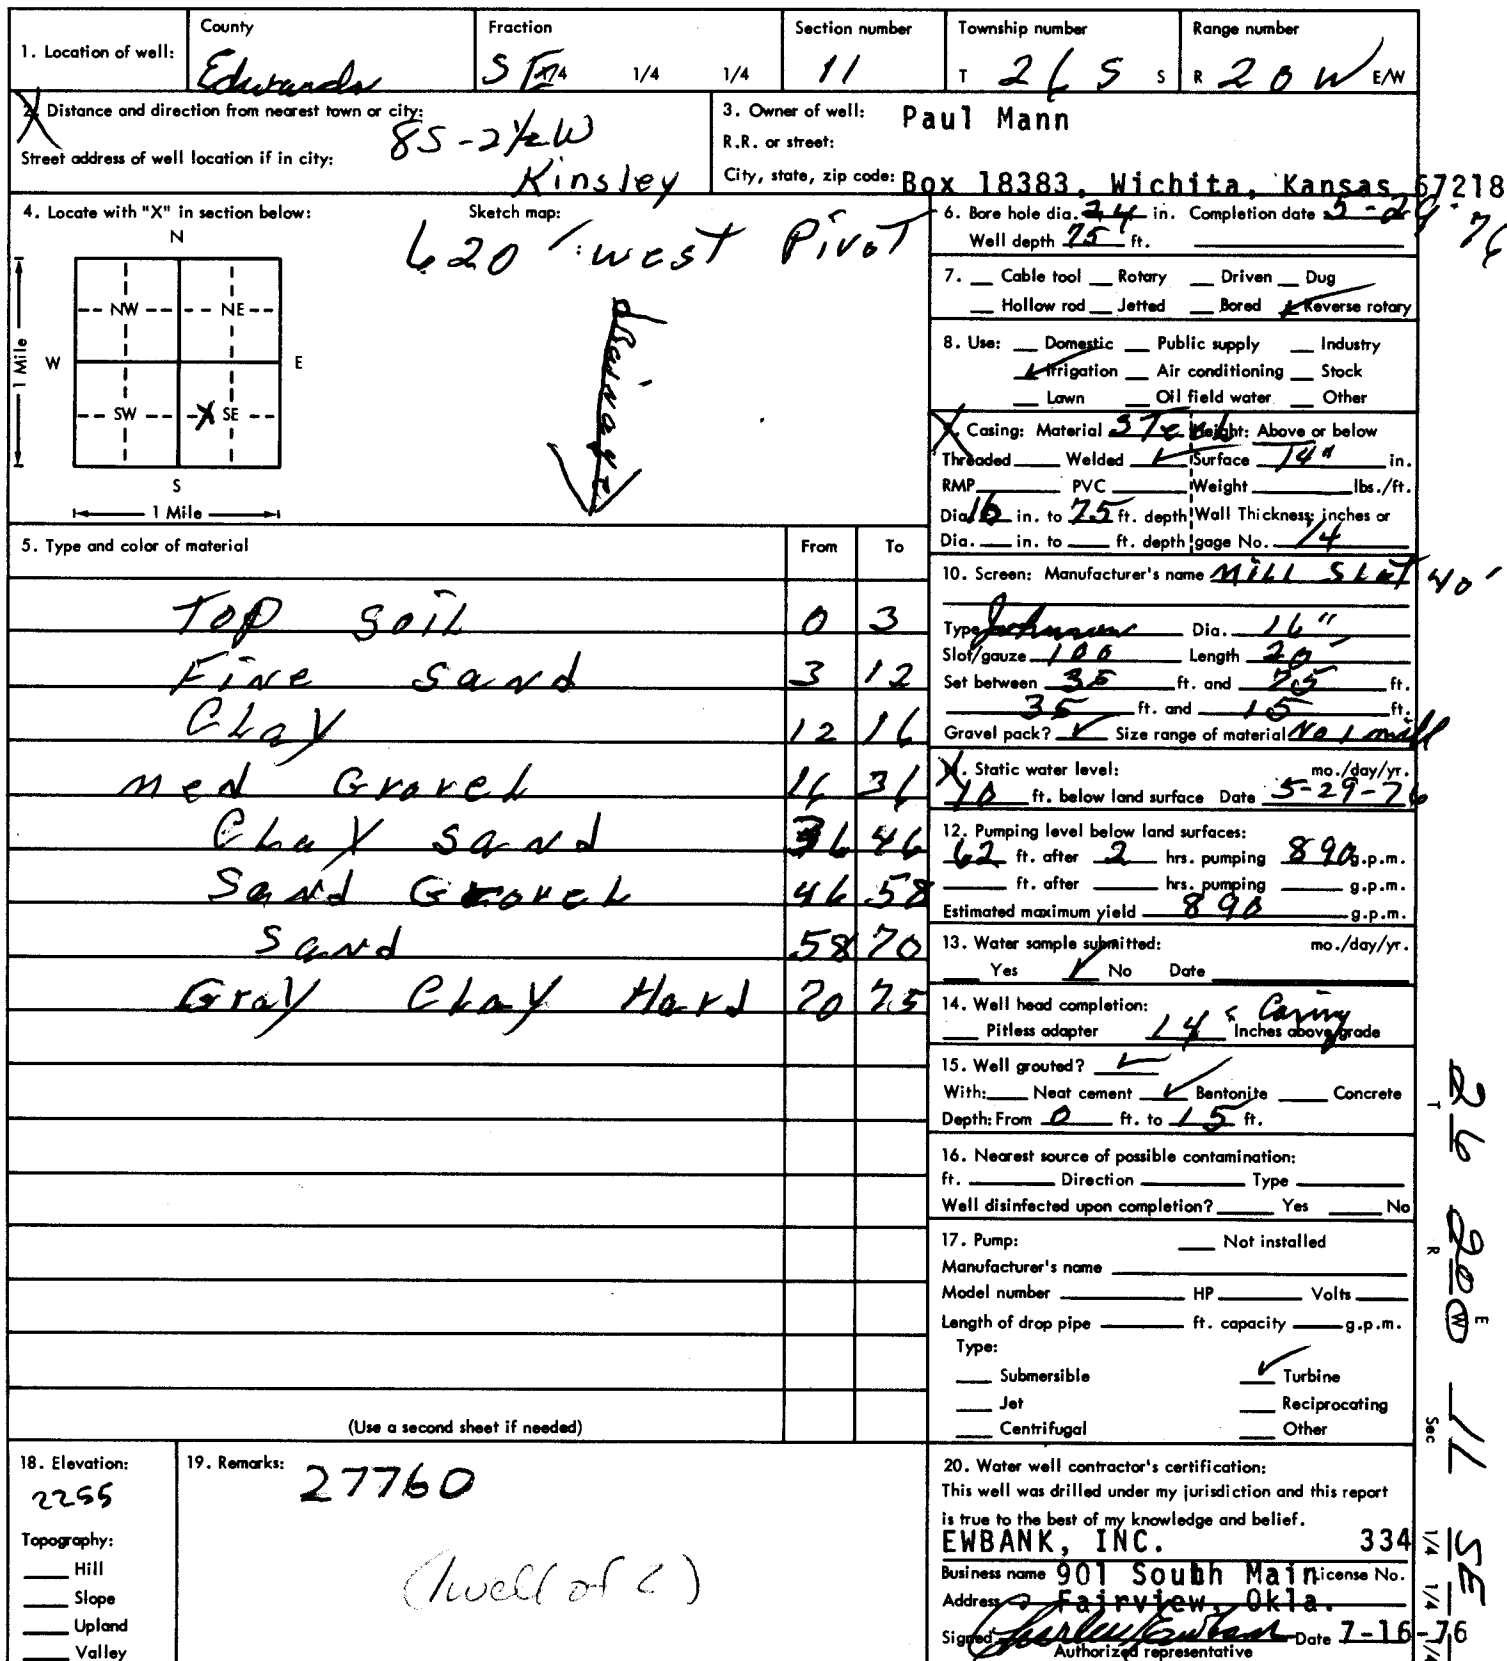 1. Location of well:
County
Edwards
Fraction
SE 1/4 1/4 1/4
Section number
11
Township number
T 26 S S
Range number
R 20 W E/W
2. Distance and direction from nearest town or city: 8S - 2 1/2 W
Street address of well location if in city: Kinsley
3. Owner of well: Paul Mann
R.R. or street:
City, state, zip code: Box 18383, Wichita, Kansas 67218
4. Locate with "X" in section below:
Sketch map:
620' west Pivot
N
NW NE
W E
SW X SE
S
1 Mile
1 Mile
drainage
6. Bore hole dia. 24 in. Completion date 5-29-76
Well depth 75 ft.
7. Cable tool Rotary Driven Dug
Hollow rod Jetted Bored ✓ Reverse rotary
8. Use: Domestic Public supply Industry
✓ Irrigation Air conditioning Stock
Lawn Oil field water Other
9. Casing: Material Steel Height: Above or below
Threaded Welded ✓ Surface 14" in.
RMP PVC Weight lbs./ft.
Dia. 16 in. to 75 ft. depth Wall Thickness: inches or
Dia. in. to ft. depth gage No. 1/4
5. Type and color of material From To
Top Soil 0 3
Fine Sand 3 12
Clay 12 16
Med Gravel 16 36
Clay Sand 36 46
Sand Gravel 46 58
Sand 58 70
Gray Clay Hard 70 75
(Use a second sheet if needed)
10. Screen: Manufacturer's name Mill Slot 40'
Type Johnson Dia. 16"
Slot/gauze 100 Length 20'
Set between 35 ft. and 75 ft.
35 ft. and 15 ft.
Gravel pack? ✓ Size range of material No 1 mill
11. Static water level: mo./day/yr.
10 ft. below land surface Date 5-29-76
12. Pumping level below land surfaces:
62 ft. after 2 hrs. pumping 890 g.p.m.
ft. after hrs. pumping g.p.m.
Estimated maximum yield 890 g.p.m.
13. Water sample submitted: mo./day/yr.
Yes ✓ No Date
14. Well head completion: Casing
Pitless adapter 14" Inches above grade
15. Well grouted? ✓
With: Neat cement ✓ Bentonite Concrete
Depth: From 0 ft. to 15 ft.
16. Nearest source of possible contamination:
ft. Direction Type
Well disinfected upon completion? Yes No
17. Pump: Not installed
Manufacturer's name
Model number HP Volts
Length of drop pipe ft. capacity g.p.m.
Type:
Submersible ✓ Turbine
Jet Reciprocating
Centrifugal Other
18. Elevation:
2255
Topography:
Hill
Slope
Upland
Valley
19. Remarks: 27760
(1 well of 2)
20. Water well contractor's certification:
This well was drilled under my jurisdiction and this report
is true to the best of my knowledge and belief.
EWBANK, INC. 334
Business name 901 South Main License No.
Address Fairview, Okla.
Signed Date 7-16-76
Authorized representative
T 26 R 20 E W Sec 11 1/4 1/4 1/4 SE